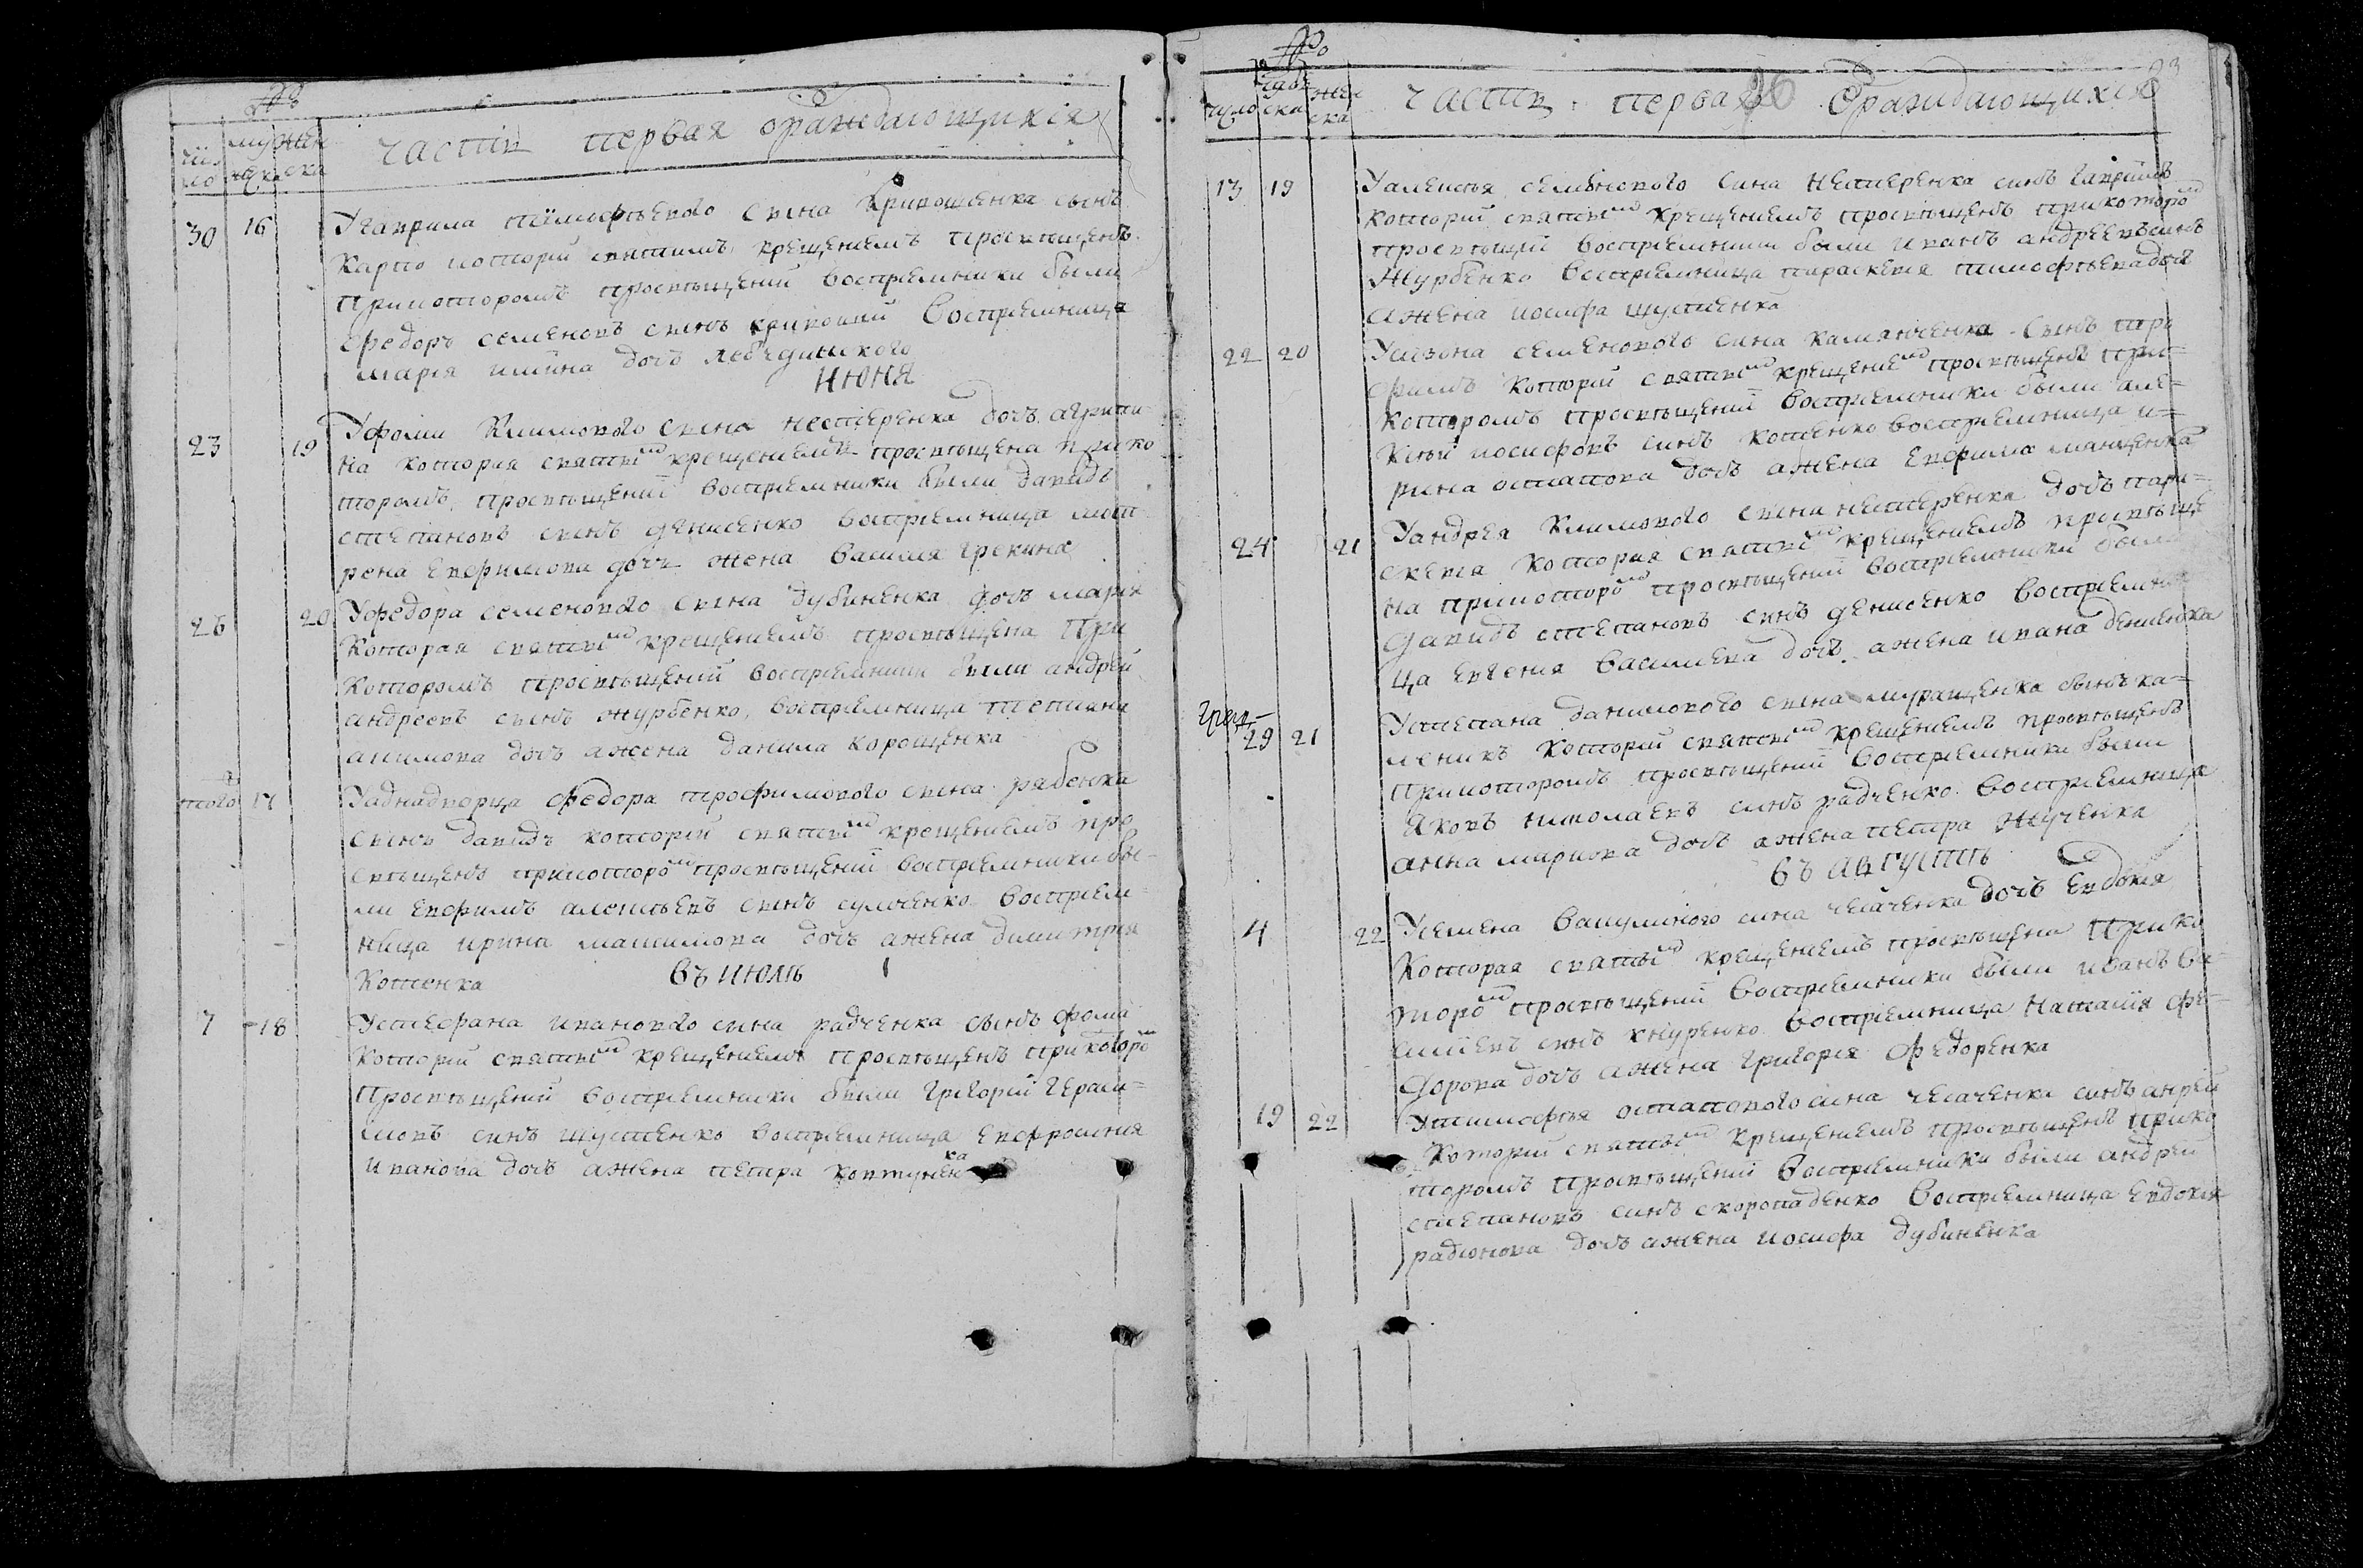 №
чи
сло
муж
ска
жен
ска
часть первая ораждающихся
30 16 У гаврила тимофѣевого сына Кривошенка сынъ
карпо которїи святимъ крещениемъ просвѣщенъ
прикоторомъ просвѣщении восприемники были
федоръ семеновъ сынъ кривошии восприемница
мария илина дочъ
июня
23 19 У фоми Климового сына нестеренка дочъ агрипи
на котория святымъ крещениемъ просвѣщена прико
торомъ просвѣщении восприемники были давидъ
степановъ сынъ денисенко восприемница мот
рона Евфимова дочъ жена василия грекина
26 20 У федора семенового сына дубиненка дочъ мария
Которая святымъ крещениемъ просвѣщена При
которомъ просвѣщении восприемники были андрей
андреевъ сынъ журбенко, восприемница татияна
акимова дочъ ажена данила корощенка
того 17 У аднадворца федора трофимового сына рябенка
сынъ давидъ которїи святымъ крещениемъ про
свѣщенъ прикоторомъ просвѣщении восприемники бы-
ли Евфимъ алексѣевъ сынъ сулченко восприем
ница ирина максимова дочъ ажена димитрия
Котенка въ июлѣ
7 18 У стефана иванового сина радченка сынъ фома
которїи святымъ крещениемъ просвѣщенъ прикоторомъ
Просвѣщении восприемники были григории гераси=
мовъ синъ шустенко восприемница Евфросиния
иванова дочъ ажена петра ковтуненка
№
число
муж
ска
жен
ска
часть первая ораждающихся
13 19 У алексѣя семенового сина нестеренка синъ гаврїилъ
которїи святымъ крещениемъ просвѣщенъ прикоторомъ
просвѣщении восприемники были иванъ андреевъ синъ
Журбенко восприемница параскевия тимофѣева дочъ
ажена иосифа шустенка
22 20 У изона семенового сина камянченка сынъ тро
фимъ которїи святымъ крещениемъ просвѣщенъ при=
которомъ просвѣщении восприемники были але=
ксѣй иосифовъ синъ котенко восприемница и=
рина остапова дочъ ажена Евфима манценка
24 21 У андрея Климового сина нестеренка дочъ пара=
скевия котория святымъ крещениемъ просвѣще
на прикоторомъ просвѣщении восприемники были
давидъ степановъ синъ денисенко восприемни
ца евгения василиева дочъ ажена ивана денисенка
29 21 У степана данилового сина муращенка сынъ ка=
леникъ которїи святымъ крещениемъ просвѣщенъ
прикоторомъ просвѣщении восприемники были
яковъ николаевъ синъ радченко восприемница
анна маркова дочъ ажена петра жученка
въ августѣ
4 22 У семена вакулиного сина чекаченка дочъ Евдокия
Которая святымъ крещениемъ просвѣщена Прико
торомъ просвѣщении восприемники были иванъ ва=
силиевъ синъ кнуренко восприемница наталїя фе=
дорова дочъ ажена григория федоренка
19 22 У тимофѣя остапового сина чекаченка синъ анрей
Которїи святымъ крещениемъ просвѣщенъ прико
торомъ просвѣщении восприемники были андрей
степановъ синъ скоропаденко восприемница Евдокия
радионова дочъ ажена иосифа дубиненка